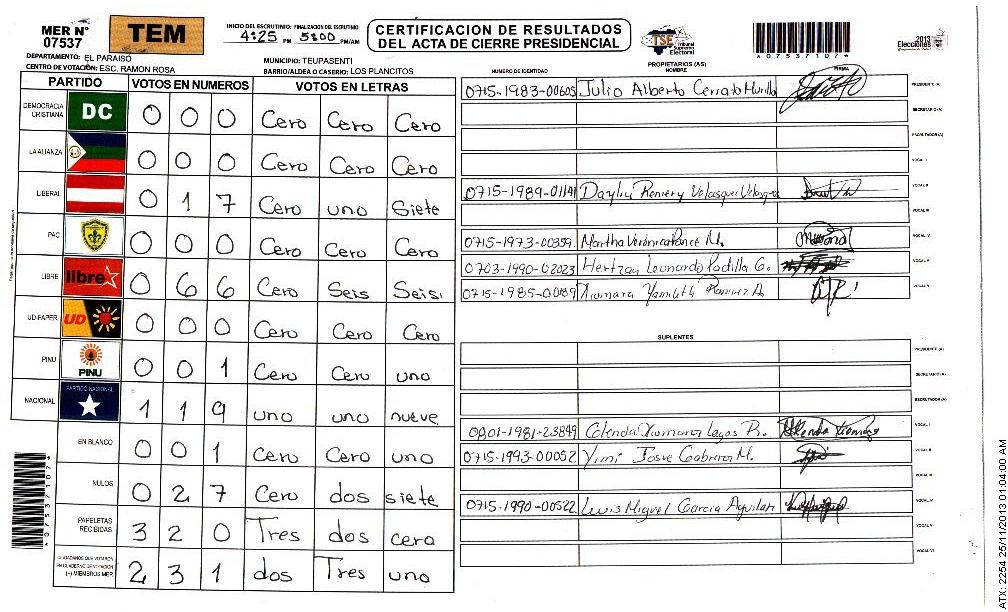 MER N° 07537
TEM
INICIO DEL ESCRUTINIO: FINALIZACION DEL ESCRUTINIO
4:25 PM 5:00 PM/AM
CERTIFICACION DE RESULTADOS
DEL ACTA DE CIERRE PRESIDENCIAL
TSE Tribunal Supremo Electoral
*07537107*
2013
Elecciones
DEPARTAMENTO: EL PARAISO
MUNICIPIO: TEUPASENTI
CENTRO DE VOTACIÓN: ESC. RAMON ROSA
BARRIO/ALDEA O CASERIO: LOS PLANCITOS
PARTIDO VOTOS EN NUMEROS VOTOS EN LETRAS
DEMOCRACIA CRISTIANA DC 0 0 0 Cero Cero Cero
LA ALIANZA 0 0 0 Cero Cero Cero
LIBERAL 0 1 7 Cero uno Siete
PAC 0 0 0 Cero Cero Cero
LIBRE libre 0 6 6 Cero Seis Seis
UD-FAPER UD 0 0 0 Cero Cero Cero
PINU PINU 0 0 1 Cero Cero uno
NACIONAL PARTIDO NACIONAL 1 1 9 uno uno nueve
EN BLANCO 0 0 1 Cero Cero uno
NULOS 0 2 7 Cero dos siete
PAPELETAS RECIBIDAS 3 2 0 Tres dos cero
CIUDADANOS QUE VOTARON EN CUADERNO DE VOTACIÓN (+) MIEMBROS MER 2 3 1 dos Tres uno
*07537107*
PROPIETARIOS (AS)
NUMERO DE IDENTIDAD NOMBRE FIRMA
0715-1983-00605 Julio Alberto Cerrato Murillo PRESIDENTE (A)
SECRETARIO (A)
ESCRUTADOR (A)
VOCAL I
0715-1989-01141 Velasquez VOCAL II
VOCAL III
0715-1973-00359 Martha Veronica Ponce M. VOCAL IV
0703-1990-02023 Hertzan Leonardo Padilla G. VOCAL V
0715-1985-00189 Xiomara Ramirez A.
SUPLENTES
PRESIDENTE (A)
SECRETARIO (A)
ESCRUTADOR (A)
0801-1981-23849 Xiomara Lagos P. VOCAL I
0715-1993-00052 Yimi Josue Cabrera M. VOCAL II
VOCAL III
0715-1990-00522 Luis Miguel Garcia Aguilar VOCAL IV
VOCAL V
VOCAL VI
ATX: 2254 25/11/2013 01:04:00 AM